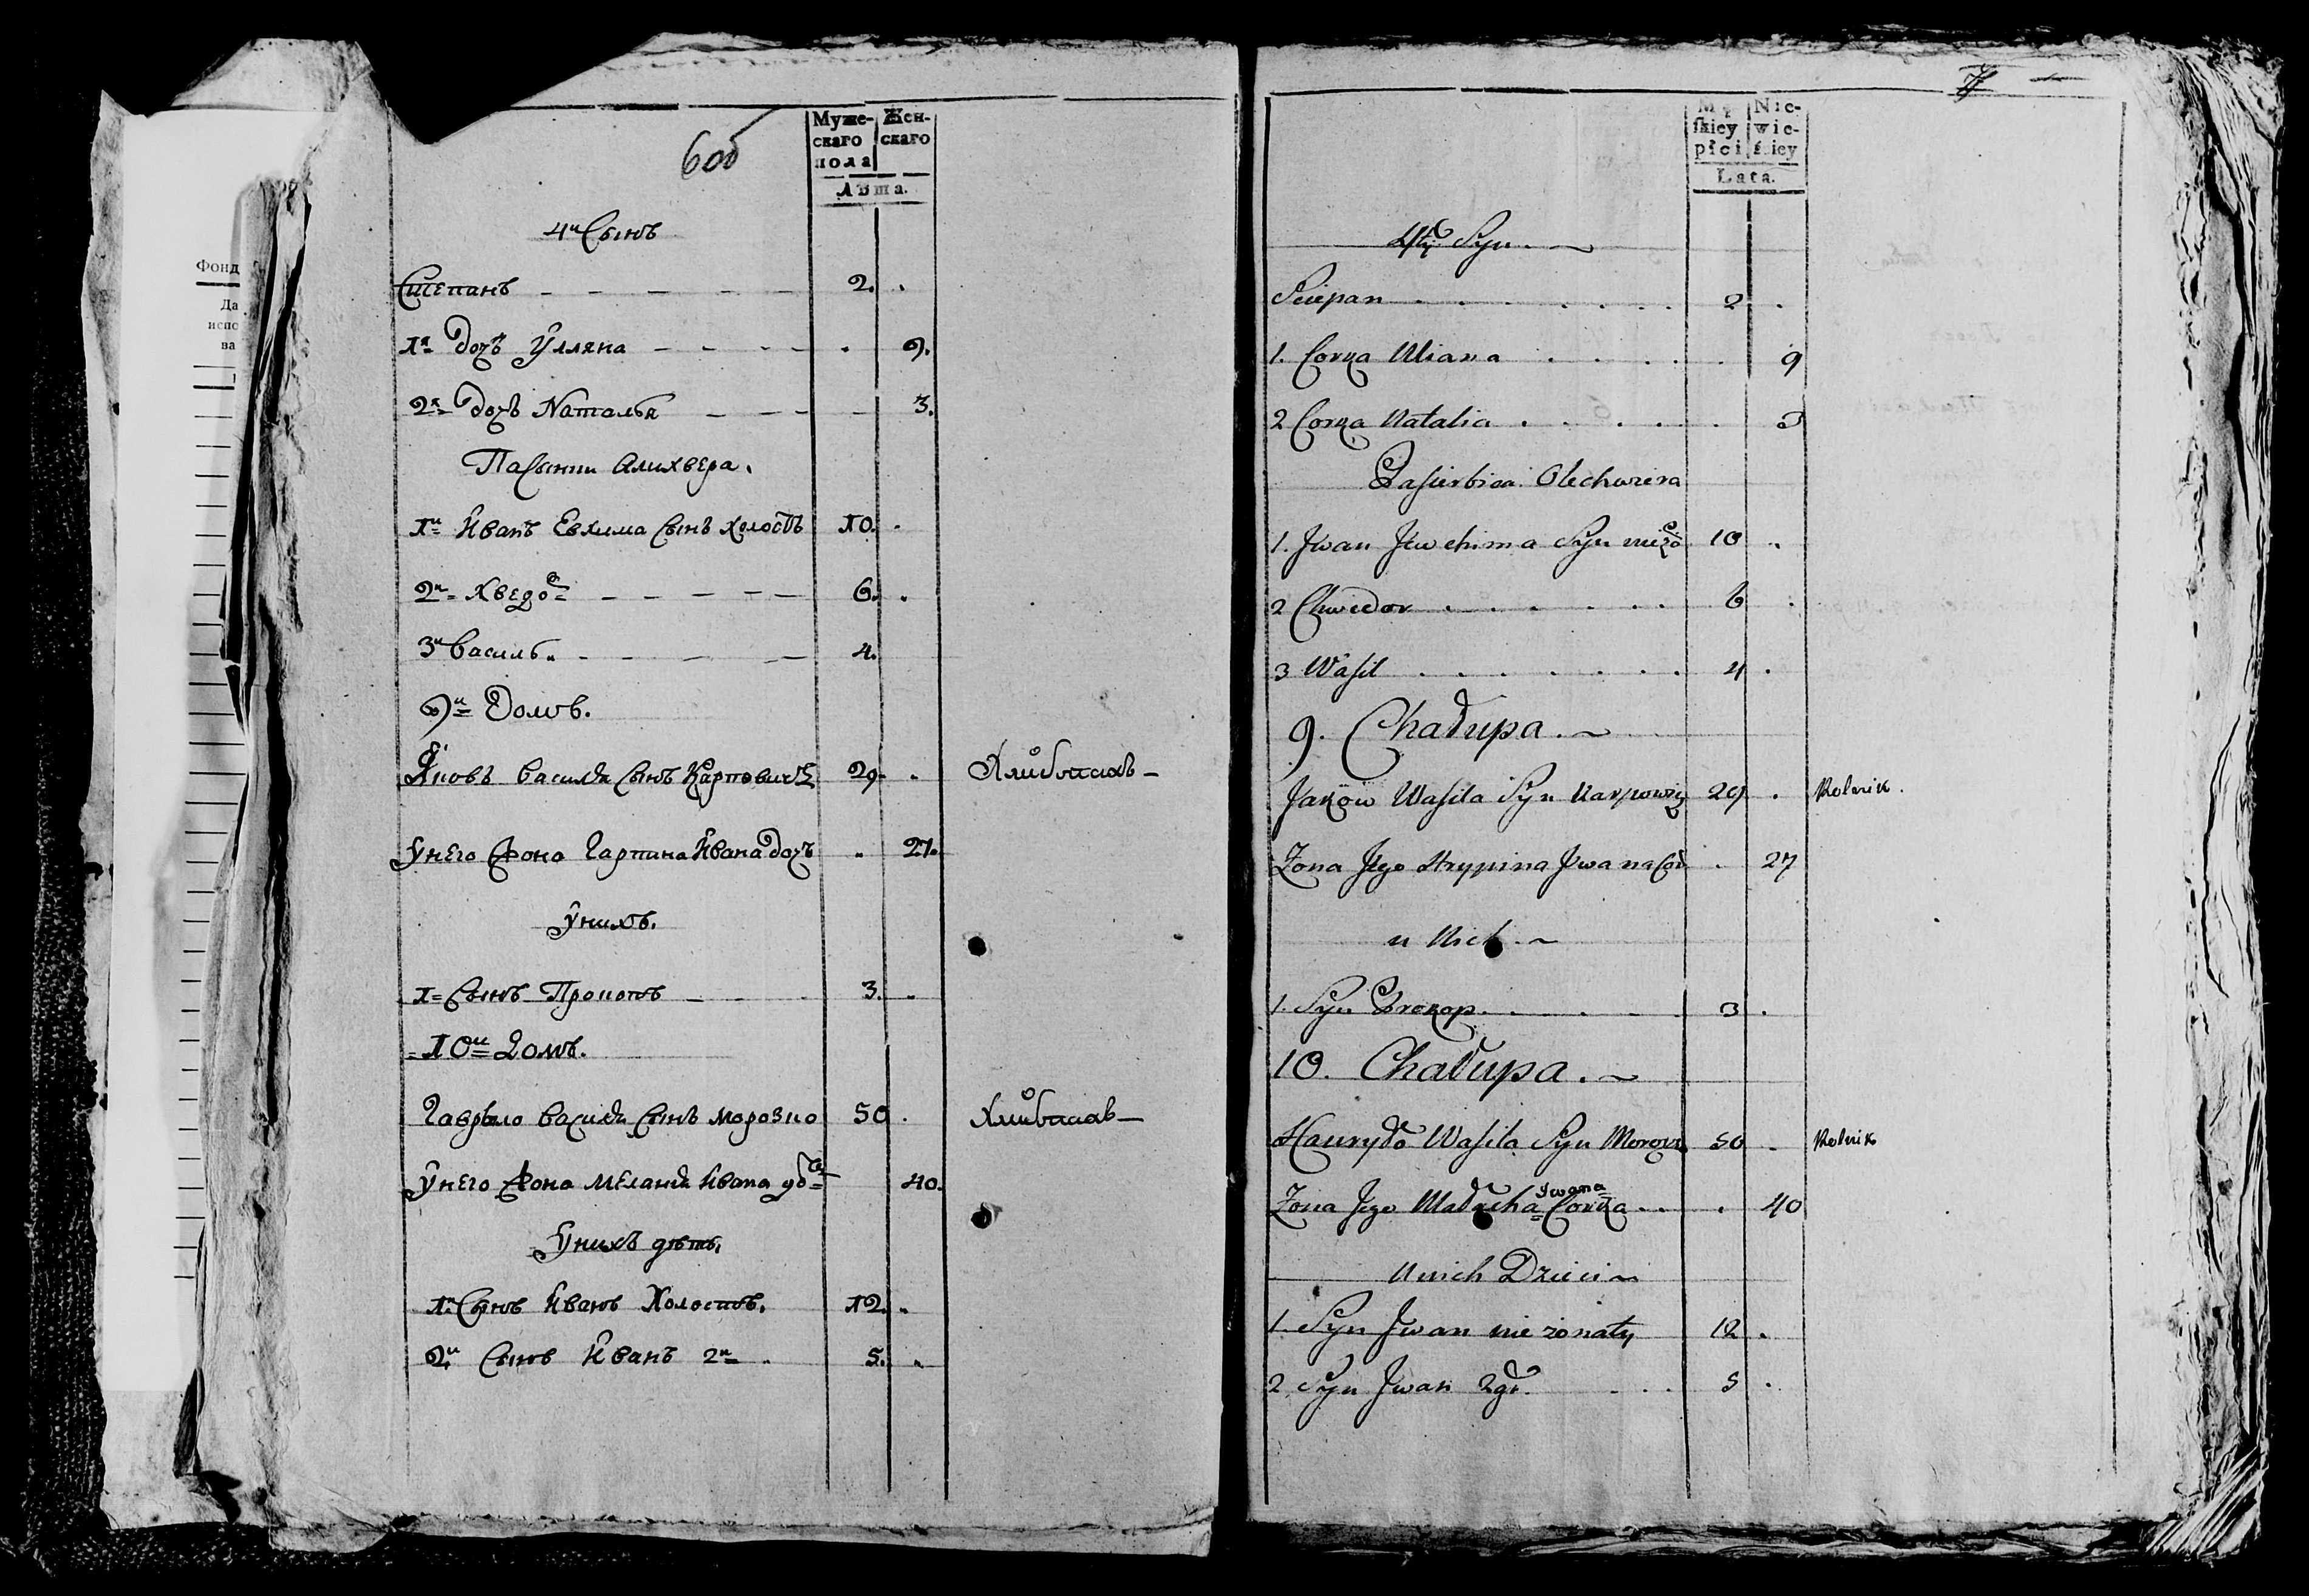 Фонд
Да
испо
ва
6об
Муже-
скаго
пола
Жен-
скаго
Лѣта.
4й Сынъ
Степанъ 2.
1я дочь Улляна 9.
2я дочь Наталья 3.
Пасынки Алихвера.
1й Иванъ Евхима Сынъ холостъ 10.
2й Хведоръ 6.
3й Василь 4.
9й Домъ.
Яковъ Василя Сынъ Карповичъ 29. Хлибопашъ
У него жона Гарпина Ивана дочь 27.
У нихъ.
1 Сынъ Прокопъ 3.
10й Домъ.
Гаврыло Василя Сынъ Морозко 50. Хлибопашъ
У него жона Мелания Ивана 40.
У нихъ дѣти.
1й Сынъ Иванъ Холостъ. 12.
2й Сынъ Иванъ 2й 5.
7
Mę-
skiey
płci
Nie-
wie-
ściey
Lata.
4ty Syn.
Sciepan 2
1. Corka Uliana 9
2 Corka Natalia 3
Pasierbica Olechwiera
1. Jwan Jewchima Syn nieżo 10
2 Chwiedor 6
3 Wasil 4
9. Chałupa.
Jakow Wasila Syn Karpowicz 29. Rolnik.
Zona Jego Hrypina Jwana Cór 27
u Nich.
1. Syn Prokop. 3
10. Chałupa.
Hauryło Wasila Syn Morozk 50 Rolnik
Zona Jego Małacha Jwana Corka 40
U nich Dzieci
1. Syn Jwan nie żonaty 12
2 Syn Jwan 2gi. 5